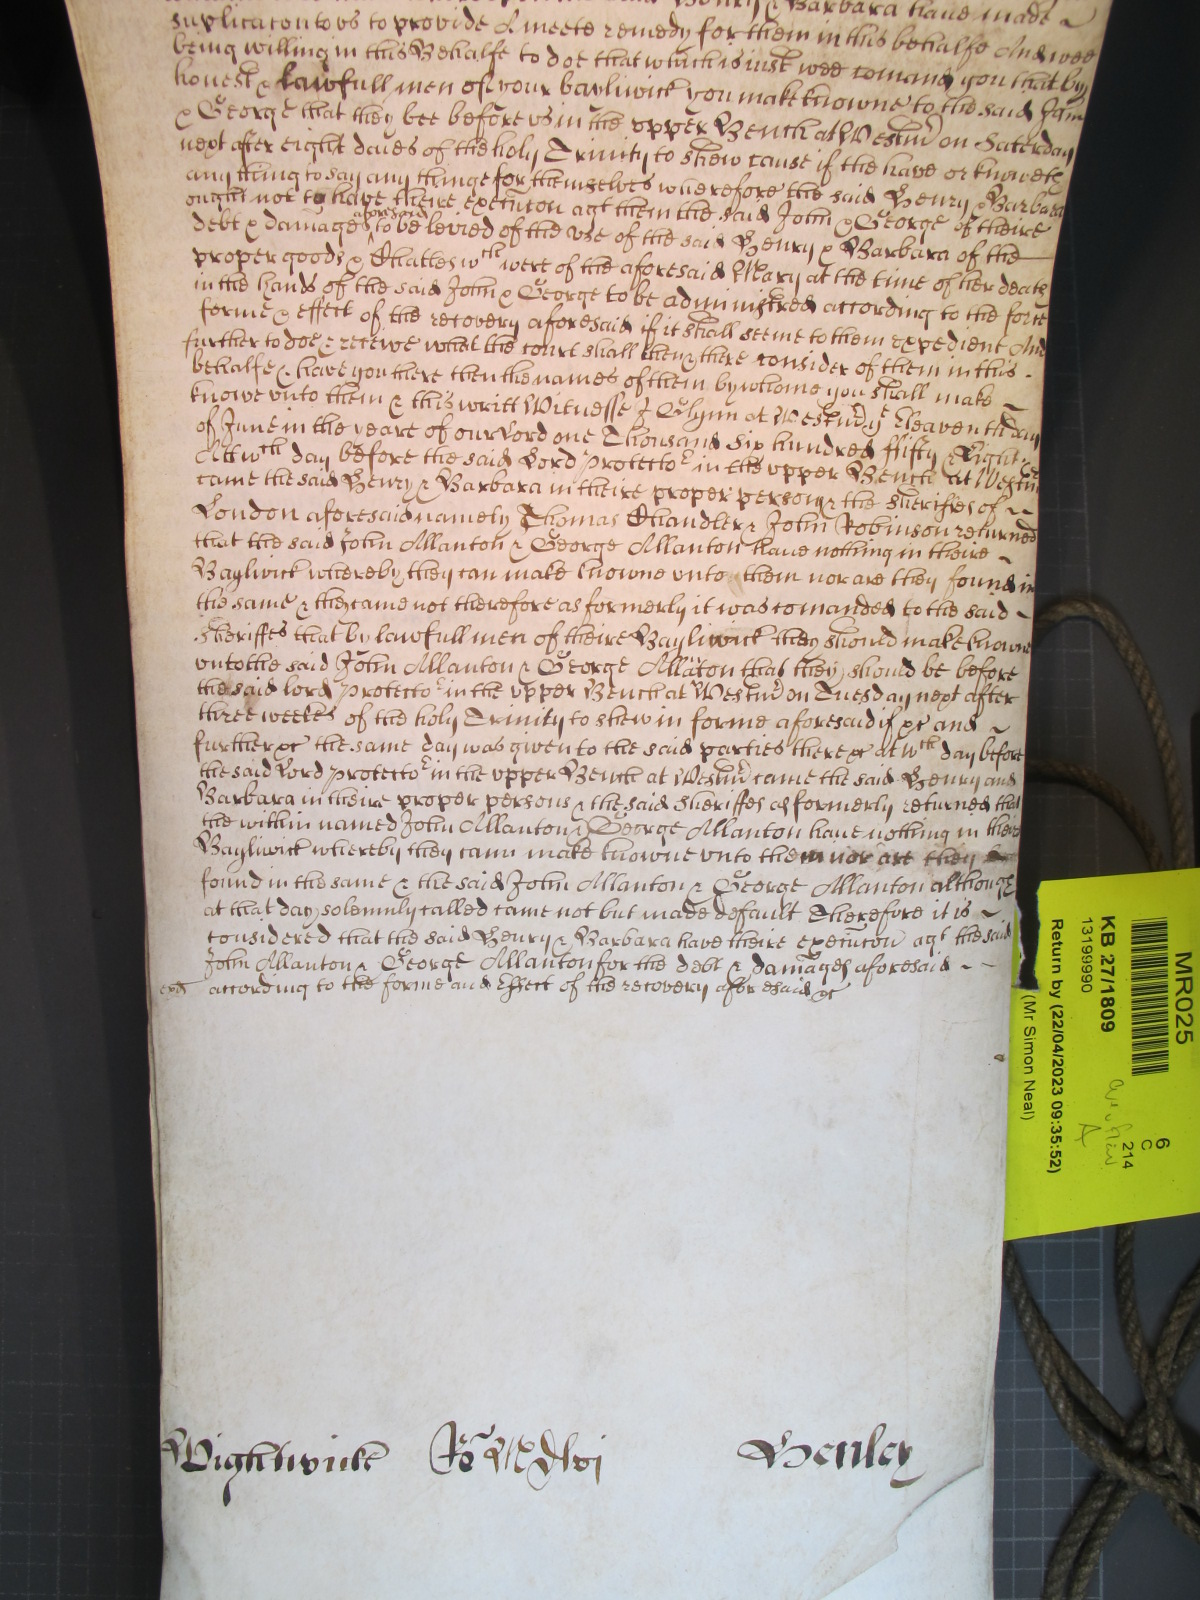 Henry & Barbara have made
suplicacon to us to provide A meete remedy for them in this behalfe And wee
being willing in this Behalfe to doe that which is iust wee comand you that by
honest & lawfull men of your bayliwick you make knowne to the said John
& George that they bee before us in the upper Bench at Westmr on Saterday
next after eight daies of the holy Trinity to shew cause if the have or knowe
any thing to say any thinge for themselves wherefore the said Henry & Barbara
ought not to have theire execucon agt them the said John & George of theire
debt & damages aforesaid to be levied of the use of the said Henry & Barbara of the
proper goods & Chattes wch were of the aforesaid Mary at the time of her death
in the hands of the said John & George to be administred according to the force
forme & effect of the recovery aforesaid if it shall seeme to them expedient And
further to doe & receive what the court shall then & there consider of them in this
behalfe & have you there then the names of them by whome you shall make
knowe unto them & this writt Witnesse J Glynn at Westmr ye Eleaventh day
of June in the yeare of our Lord one Thousand Six hundred ffifty & Eight
Att wch day before the said Lord protector in the upper Bench at Westmr
came the said Henry & Barbara in theire proper persons & the Sheriffes of
London aforesaid namely Thomas Chandler & John Robinson returned
that the said John Allanton & George Allanton have nothing in theire
Bayliwick whereby they can make knowne unto them nor are they found in
the same & they came not therefore as formerly it was comanded to the said
Sheriffes that by lawfull men of theire Bayliwick they should make knowne
unto the said John Allanton & George Allāton that they should be before
the said lord protector in the upper Bench at Westmr on Tuesday next after
three weekes of the holy Trinity to shew in forme aforesaid if &c and
further &c the same day was given to the said parties there &c at wch day before
the said Lord protector in the upper Bench at Westmr came the said Henry and
Barbara in theire proper persons & the said Sheriffes as formerly returned that
the within named John Allanton & George Allanton have nothing in their
Bayliwick whereby they cann make knowne unto them nor are they
found in the same & the said John Allanton & George Allanton although
at that day solemnly called came not but made default Therefore it is
considered that the said Henry & Barbara have theire execucon agt the said
John Allanton & George Allanton for the debt & damages aforesaid
according to the forme and Effect of the recovery aforesaid &c
Wightwicke
Henley
MR025
6
C
214
A
KB 27/1809
13199990
Return by (22/04/2023 09:35:52)
(Mr Simon Neal)